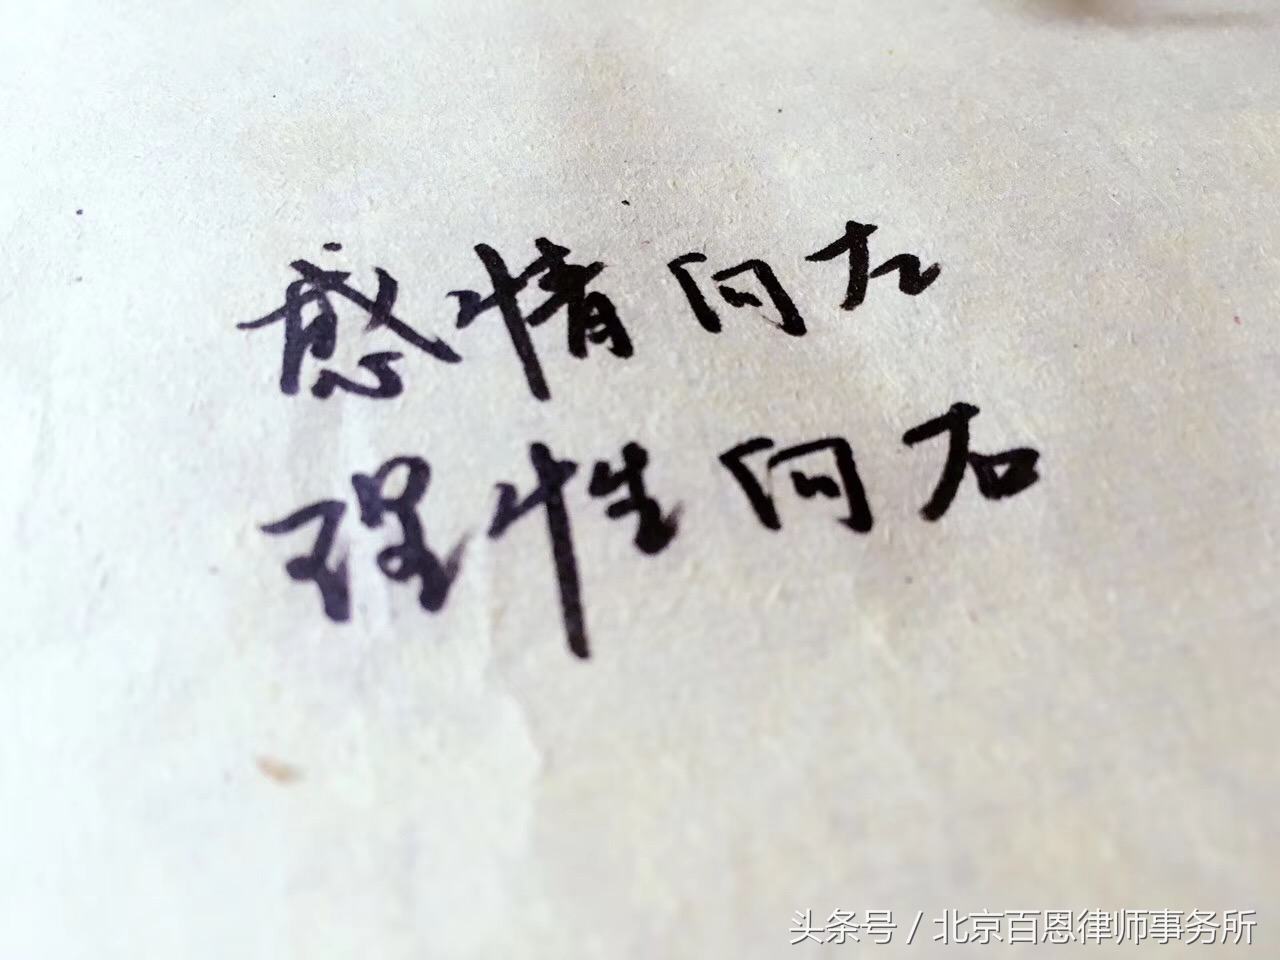 感情向左
理性向右
头条号 / 北京百恩律师事务所